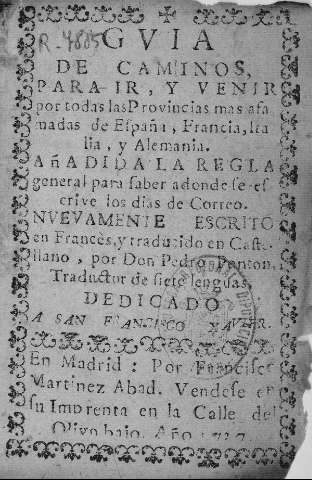 R. 4805
GVIA
DE CAMINOS,
PARA IR, Y VENIR
por todas las Provincias mas afa
madas de España, Francia, Ita
lia, y Alemania.
AñADIDA LA REGLA
general para saber adonde se es-
crive los dias de Correo.
NVEVAMENTE ESCRITO
en Francès, y traducido en Caste-
llano, por Don Pedro Ponton,
Traductor de siete lenguas,
DEDICADO
A SAN FRANCISCO XAVIER.
En Madrid: Por Francisco
Martinez Abad. Vendese en
su Imprenta en la Calle del
Olivo baxo. Año 1727.